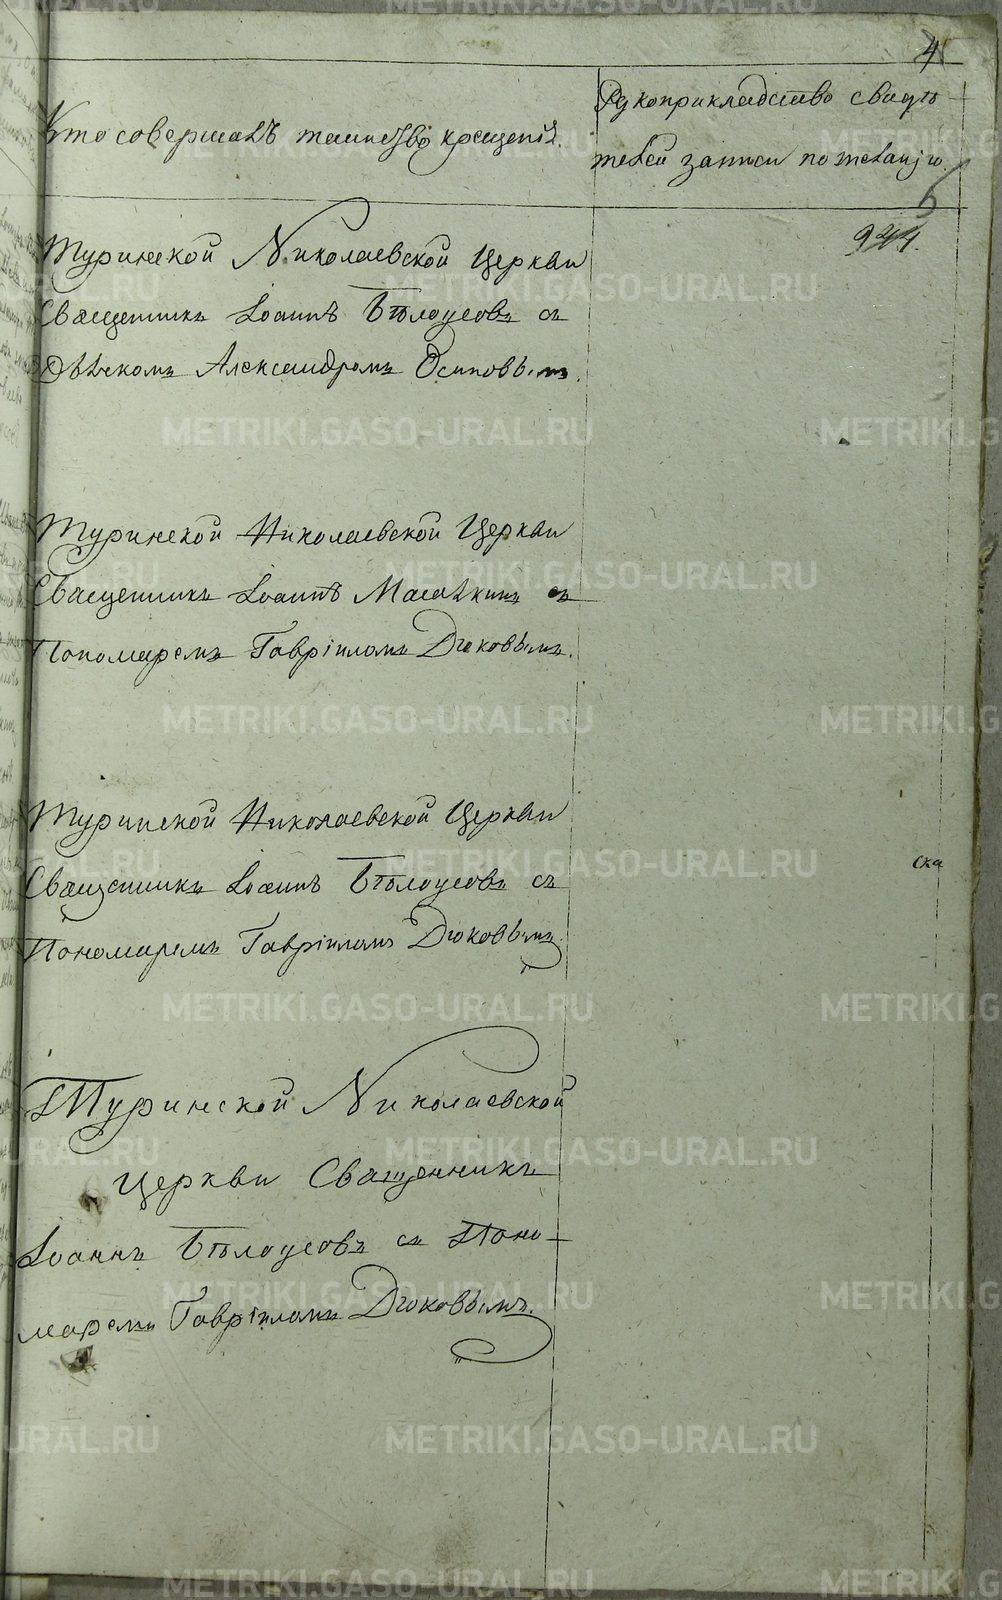 4
Кто совершалъ таинство крещенiя.
Рукоприкладство свидѣ-
телей записи по желанiю.
6
944.
Туринской Николаевской Церкви
Священникъ Iоаннъ Бѣлоусовъ съ
Дьячкомъ Александромъ Осиповымъ.
Туринской Николаевской Церкви
Священникъ Iоаннъ Масалкинъ съ
Пономаремъ Гаврiиломъ Дюковымъ.
Туринской Николаевской Церкви
Священникъ Iоаннъ Бѣлоусовъ съ
Пономаремъ Гаврiиломъ Дюковымъ.
ска
Туринской Николаевской
Церкви Священникъ
Iоаннъ Бѣлоусовъ съ Поно-
маремъ Гаврiиломъ Дюковымъ.
METRIKI.GASO-URAL.RU